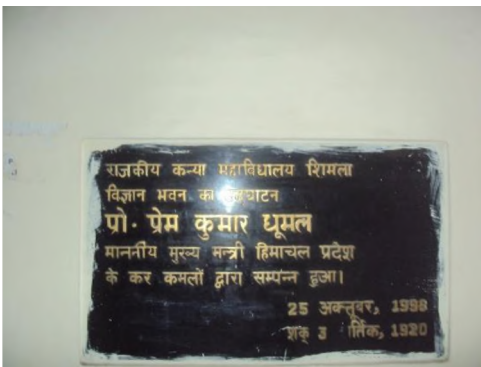 राजकीय कन्या महाविधालय शिमला
विज्ञान भवन का उद्घाटन
प्रो. प्रेम कुमार धूमल
माननीय मुख्य मन्त्री हिमाचल प्रदेश
के कर कमलों द्वारा सम्पन्न हुआ।
25 अक्तूबर, 1998
शक् 3 र्तिक, 1920